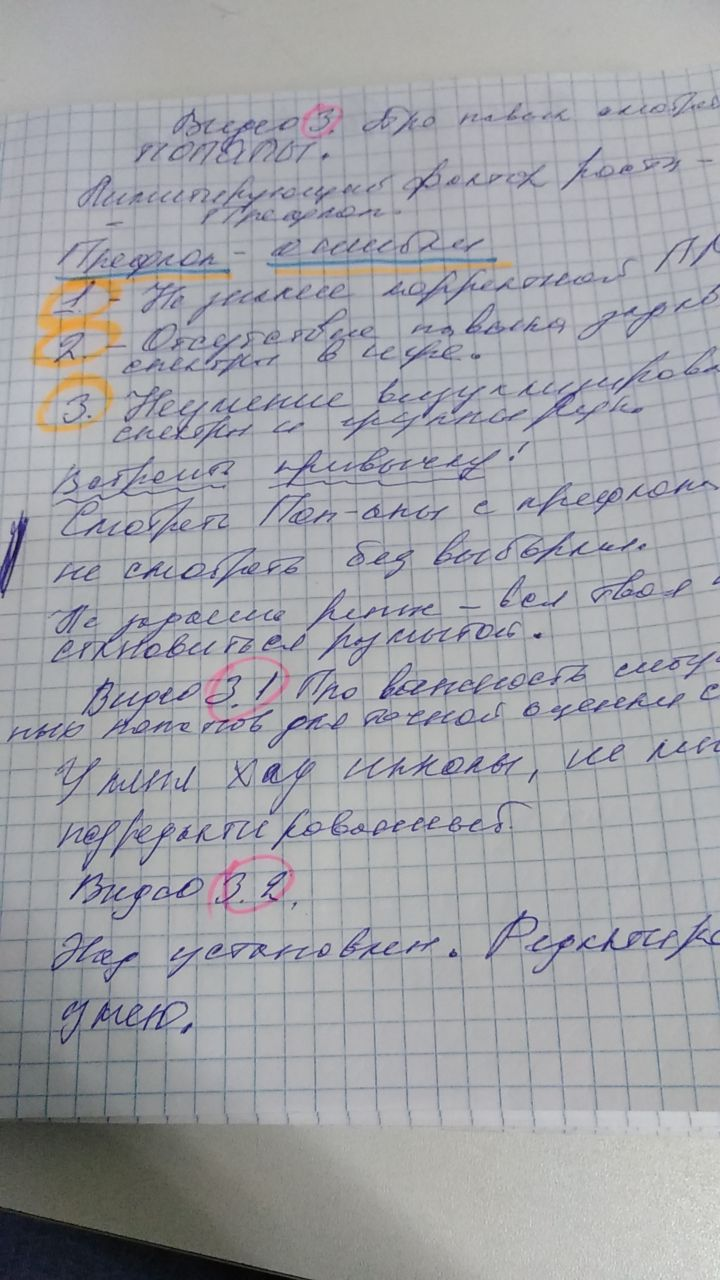 Видео 3. Про навык смотреть
ПОПАПЫ.
Лимитирующий фактор роста -
- Префлоп.
Префлоп - ошибки
1. - Не знание корректной ПР
2. - Отсутствие навыка задав
спектры в игре.
3. Неумение визуализирова
спектры и
Встроить привычку!
Смотреть Поп-апы с префлопа
не смотреть без выборки.
Не задаешь ренж - вся твоя
становиться размытой.
Видео 3.1 Про важность смотр
попапов для точной оценки с
У меня Худ школы, не
подредактированный.
Видео 3.2.
Худ установлен. Редактиро
умею.